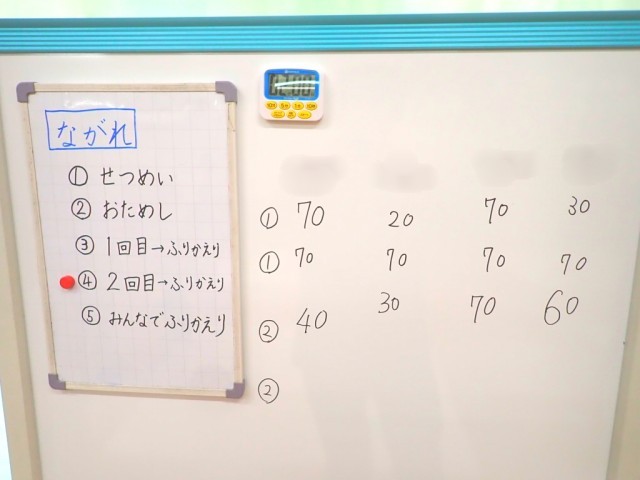 ながれ
① せつめい
② おためし
③ 1回目→ふりかえり
④ 2回目→ふりかえり
⑤ みんなでふりかえり
① 70 20 70 30
① 70 70 70 70
② 40 30 70 60
②